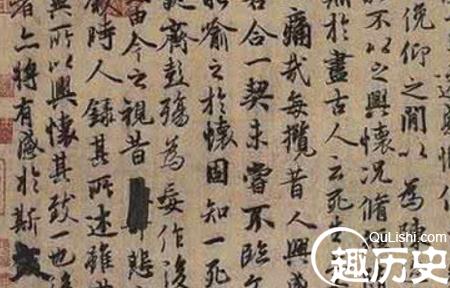 俛仰之間以為
不以之興懷況脩
於盡古人云死生
痛哉每攬昔人興感
合一契未嘗不臨文
喻之於懷固知一死
齊彭殤為妄作後
今之視昔悲
時人錄其所述雖世
所以興懷其致一也後
者亦將有感於斯
QuLiShi.com
趣历史